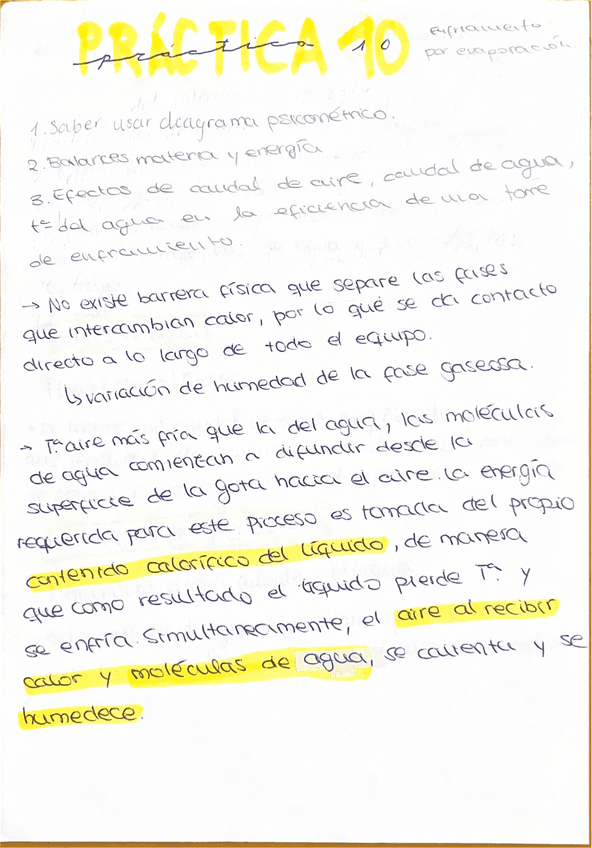 PRÁCTICA 10
práctica 10
enfriamiento
por evaporación.
1. Saber usar diagrama psicométrico.
2. Balances materia y energía
3. Efectos de caudal de aire, caudal de agua,
tª del agua en la eficiencia de una torre
de enfriamiento.
→ No existe barrera física que separe las fases
que intercambian calor, por lo qué se da contacto
directo a lo largo de todo el equipo.
↳ variación de humedad de la fase gaseosa.
→ Tª aire más fría que la del agua, las moléculas
de agua comienzan a difundir desde la
superficie de la gota hacia el aire. La energía
requerida para este proceso es tomada del propio
contenido calorífico del líquido, de manera
que como resultado el líquido pierde Tª y
se enfría. Simultaneamente, el aire al recibir
calor y moléculas de agua, se calienta y se
humedece.